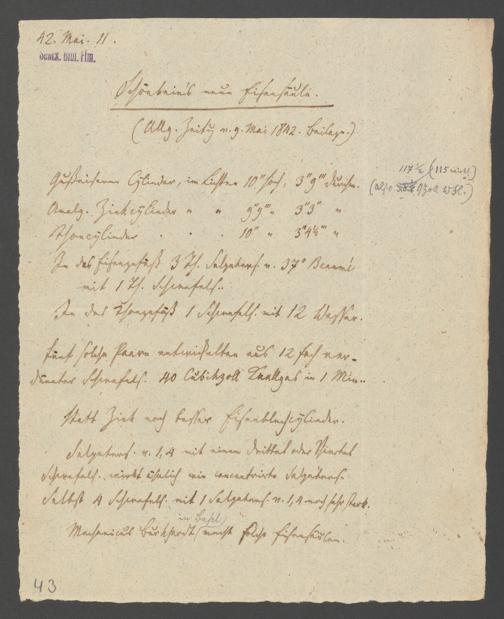 42. Mai. 11.
Senck. Bibl. Ffm.
Schönbein's neue Eisensäule.
(Allg. Zeitg v. 9. Mai 1842. Beilage.)
117 ½ (115
Gußeiserne Cylinder, im Lichten 10" hoch, 3" 9''' Durchm.
(also Zoll
Amalg. Zinkcylinder " " 9" 9''' " 3" 3''' "
Thoncylinder . . . 10" " 3" 4½''' "
In das Eisengefäß 3 Th. Salpeters. v. 37° Beaumé
mit 1 Th. Schwefels.
In das Thongefäß 1 Schwefels. mit 12 Wasser.
Fünf solche Paare entwickelten aus 12 fach ver-
dünnter Schwefels. 40 Cubikzoll Knallgas in 1 Min.
Statt Zink noch besser Eisenblechcylinder.
Salpeters. v. 1,4 mit einem Drittel oder Viertel
Schwefels. wirkt ähnlich wie concentrirte Salpeters.
Selbst 4 Schwefels. mit 1 Salpeters. v. 1,4 noch sehr stark.
in Basel
Mechanicus Burkhardt macht solche Eisensäulen.
43